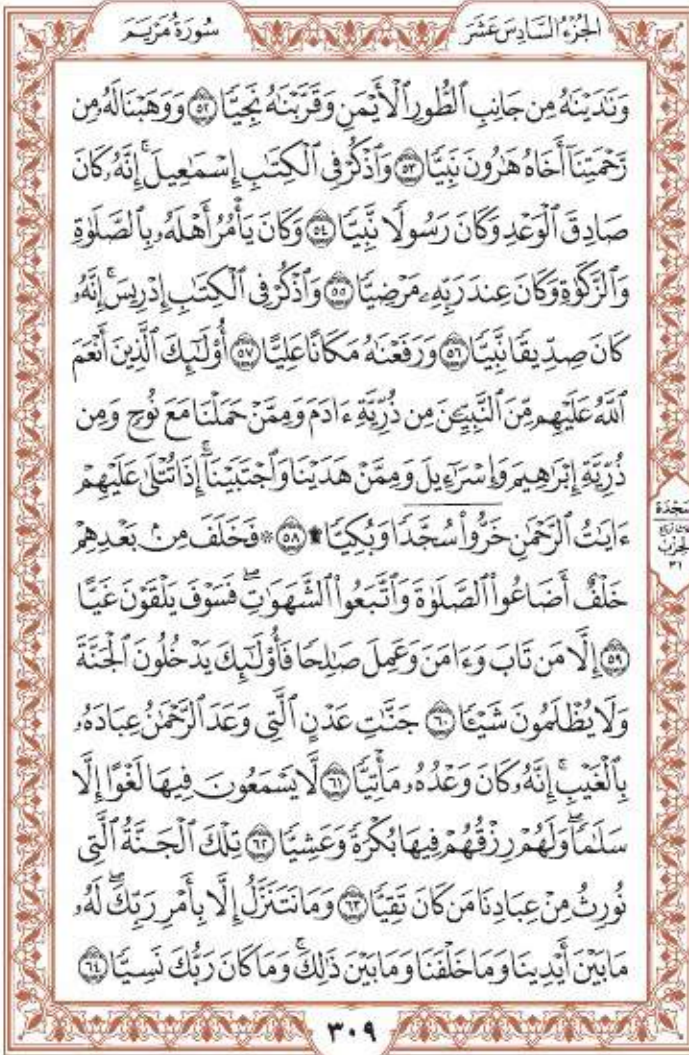 الجُزْءُ السَّادِسَ عَشَرَ
سُورَةُ مَرْيَم
وَنَٰدَيْنَٰهُ مِن جَانِبِ ٱلطُّورِ ٱلْأَيْمَنِ وَقَرَّبْنَٰهُ نَجِيًّا ٥٢ وَوَهَبْنَا لَهُۥ مِن
رَّحْمَتِنَآ أَخَاهُ هَٰرُونَ نَبِيًّا ٥٣ وَٱذْكُرْ فِى ٱلْكِتَٰبِ إِسْمَٰعِيلَ ۚ إِنَّهُۥ كَانَ
صَادِقَ ٱلْوَعْدِ وَكَانَ رَسُولًا نَّبِيًّا ٥٤ وَكَانَ يَأْمُرُ أَهْلَهُۥ بِٱلصَّلَوٰةِ
وَٱلزَّكَوٰةِ وَكَانَ عِندَ رَبِّهِۦ مَرْضِيًّا ٥٥ وَٱذْكُرْ فِى ٱلْكِتَٰبِ إِدْرِيسَ ۚ إِنَّهُۥ
كَانَ صِدِّيقًا نَّبِيًّا ٥٦ وَرَفَعْنَٰهُ مَكَانًا عَلِيًّا ٥٧ أُو۟لَٰٓئِكَ ٱلَّذِينَ أَنْعَمَ
ٱللَّهُ عَلَيْهِم مِّنَ ٱلنَّبِيِّـۧنَ مِن ذُرِّيَّةِ ءَادَمَ وَمِمَّنْ حَمَلْنَا مَعَ نُوحٍ وَمِن
ذُرِّيَّةِ إِبْرَٰهِيمَ وَإِسْرَٰٓءِيلَ وَمِمَّنْ هَدَيْنَا وَٱجْتَبَيْنَآ ۚ إِذَا تُتْلَىٰ عَلَيْهِمْ
ءَايَٰتُ ٱلرَّحْمَٰنِ خَرُّوا۟ سُجَّدًا وَبُكِيًّا ۩ ٥٨ ۞ فَخَلَفَ مِنۢ بَعْدِهِمْ
خَلْفٌ أَضَاعُوا۟ ٱلصَّلَوٰةَ وَٱتَّبَعُوا۟ ٱلشَّهَوَٰتِ ۖ فَسَوْفَ يَلْقَوْنَ غَيًّا
٥٩ إِلَّا مَن تَابَ وَءَامَنَ وَعَمِلَ صَٰلِحًا فَأُو۟لَٰٓئِكَ يَدْخُلُونَ ٱلْجَنَّةَ
وَلَا يُظْلَمُونَ شَيْـًٔا ٦٠ جَنَّٰتِ عَدْنٍ ٱلَّتِى وَعَدَ ٱلرَّحْمَٰنُ عِبَادَهُۥ
بِٱلْغَيْبِ ۚ إِنَّهُۥ كَانَ وَعْدُهُۥ مَأْتِيًّا ٦١ لَّا يَسْمَعُونَ فِيهَا لَغْوًا إِلَّا
سَلَٰمًا ۖ وَلَهُمْ رِزْقُهُمْ فِيهَا بُكْرَةً وَعَشِيًّا ٦٢ تِلْكَ ٱلْجَنَّةُ ٱلَّتِى
نُورِثُ مِنْ عِبَادِنَا مَن كَانَ تَقِيًّا ٦٣ وَمَا نَتَنَزَّلُ إِلَّا بِأَمْرِ رَبِّكَ ۖ لَهُۥ
مَا بَيْنَ أَيْدِينَا وَمَا خَلْفَنَا وَمَا بَيْنَ ذَٰلِكَ ۚ وَمَا كَانَ رَبُّكَ نَسِيًّا ٦٤
سَجْدَة
الحِزْب
٣١
٣٠٩